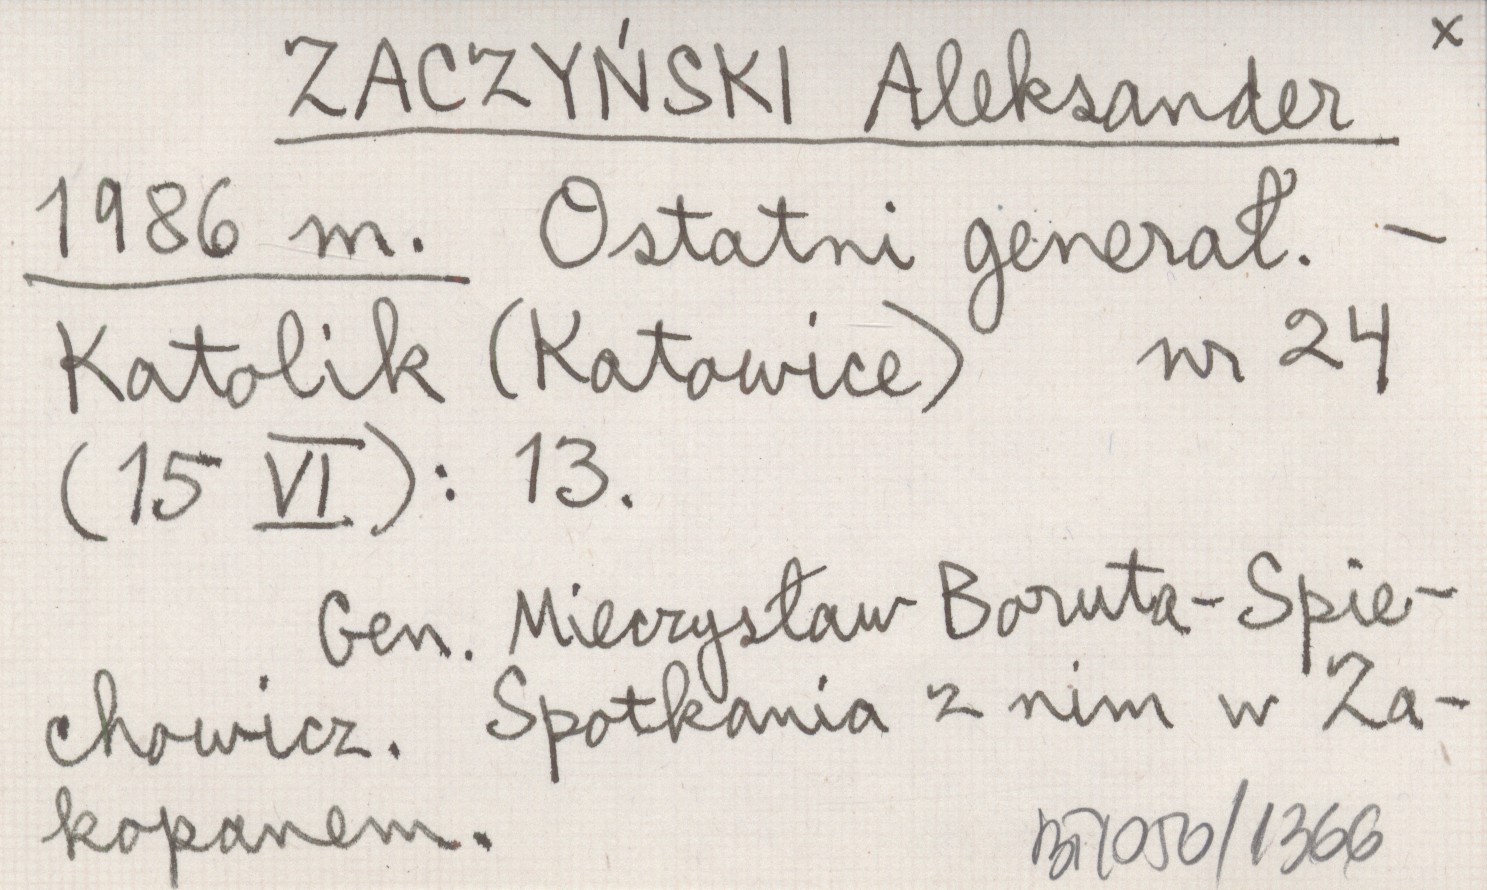 x
ZACZYŃSKI Aleksander
1986 m. Ostatni generał. -
Katolik (Katowice) nr 24
(15 VI): 13.
Gen. Mieczysław Boruta-Spie-
chowicz. Spotkania z nim w Za-
kopanem.
/1366